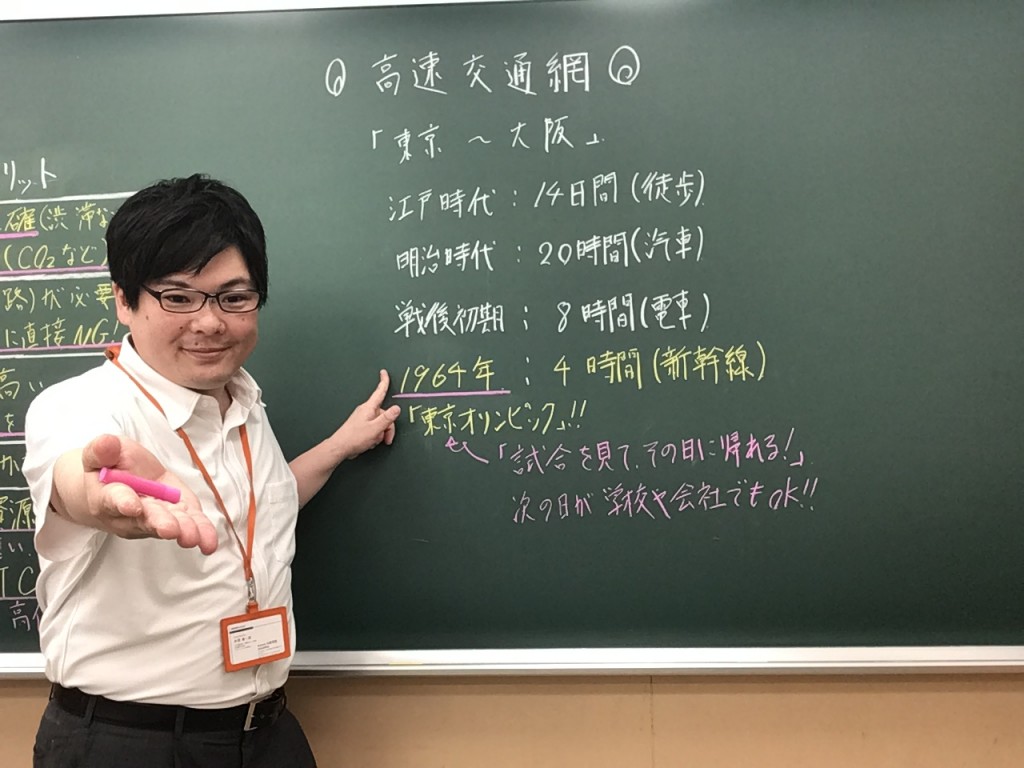 リット
確(渋滞な
(CO₂など)
路)が必要
に直接NG!
高い
を
か
資源
TC
高
高速交通網
「東京〜大阪」
江戸時代:14日間(徒歩)
明治時代:20時間(汽車)
戦後初期:8時間(電車)
1964年:4時間(新幹線)
「東京オリンピック」!!
「試合を見て、その日に帰れる!」
次の日が学校や会社でもOK!!